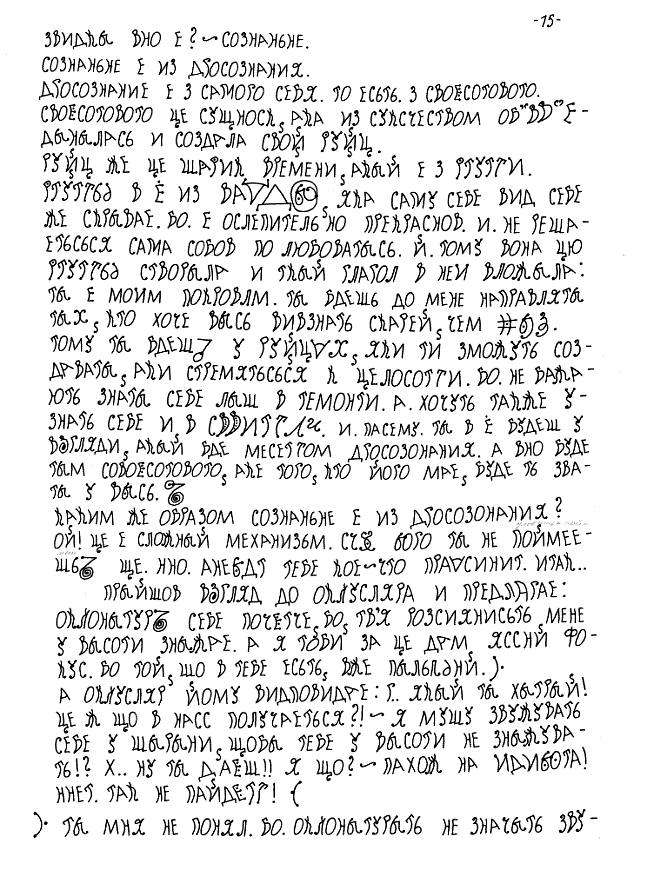 -15-
ЗВИДКЫ ВНО Е? СОЗНАНЬНЕ.
СОЗНАНЬНЕ Е ИЗ ДРОСОЗНАНИЯ.
ДРОСОЗНАНИЕ Е З САМОГО СЕБЯ. ТО ЕСЬТЬ. З СВОЕСОТОВОГО.
СВОЕСОТОВОГО ЦЕ СУЩНОСЬ, АКА ИЗ СУКСЧЕСТВОМ ОБ"ВД"Е-
ДЫНЫЛАСЬ И СОЗДАЛА СВОЙ РУЙЦ.
РУЙЦ ЖЕ ЦЕ ШАРИК, ВРЕМЕНИ, АКЫЙ Е З РТУТТИ.
В Е ИЗ ЯКА САМУ СЕБЕ ВИД СЕБЕ
ЖЕ СКРЫВАЕ. БО. Е ОСЛЕПИТЕЛЬНО ПРЕКРАСНОВ. И. НЕ РЕША-
ЕТЬСЬСЯ САМА СОБОВ ПОЛЮБОВАТЫСЬ. Й. ТОМУ ВОНА ЦЮ
СТВОРЫЛА И ТКЫЙ ГЛАГОЛ В НЕИ ВЛОЖЫЛА:
ТЫ Е МОИМ ПОКРОВЛМ. ТЫ ВДЕШЬ ДО МЕНЕ НАПРАВЛЯТЫ
ТЫХ, КТО ХОЧЕ ВЫСЬ ВИВЗНАТЬ СКАРЕЙ, ЧЕМ
ТОМУ ТЫ ВДЕШ У РУЙЦ ЯКИ ТИ ЗМОЖУТЬ СОЗ-
ДРВАТЫ, АКИ СТРЕМЯТЬСЬСЯ К ЦЕЛОСОТТИ. БО. НЕ ВАЖА-
ЮТЬ ЗНАТЫ СЕБЕ ЛЫШ В ТЕМОНТИ. А. ХОЧУТЬ ТАКЖЕ У-
ЗНАТЬ СЕБЕ И, В И. ПАСЕМУ. ТЫ В Е БУДЕШ У
ВЗГЛЯДИ, АКЫЙ БДЕ МЕСЕТТОМ ДРОСОЗОНАНИЯ. А ВНО БУДЕ
ТЫМ СОВОЕСОТОВОГО, АКЕ ТОГО, КТО ЙОГО МАЕ, БУДЕ ТЬ ЗВА-
ТЫ У ВЫСЬ.
КАКИМ ЖЕ ОБРАЗОМ СОЗНАНЬНЕ Е ИЗ ДРОСОЗОНАНИЯ?
ОЙ! ЦЕ Е СЛОЖНЫЙ МЕХАНИЗЬМ. БОГО ТЫ НЕ ПОЙМЕЕ-
ШЬ ЩЕ. ННО. АНЕВДТ ТЕБЕ КОЕ-ЧТО ПРАСИНИТ. ИТАК..
ПРЫЙШОВ ВЗГЛЯД ДО ОКЛУСЛЯРА И ПРЕДЛАГАЕ:
СЕБЕ ПОЧЕТЧЕ. БО, ТВЯ РОЗСИЯНИСЬТЬ, МЕНЕ
У ВЫСОТИ ЗНЫЖАЕ. А Я ТОБИ ЗА ЦЕ ДАМ, ЯССНИЙ ФО-
КУС. БО ТОЙ, ЩО В ТЕБЕ ЕСЬТЬ, ВЖЕ ПЫЛЫЛАНИЙ.).
А ОКЛУСЛЯР ЙОМУ ВИДПОВИДАЕ: Г. ЯКЫЙ ТЫ ХЫТРЫЙ!
ЦЕ Ж ЩО В НАСС ПОЛУЧАЕТЬСЯ?! Я МУШУ ЗВУЖУВАТЬ
СЕБЕ У ШЫРЫНИ, ЩОБЫ ТЕБЕ У ВЫСОТИ НЕ ЗНЫЖУВА-
ТЬ!? Х.. НУ ТЫ ДАЕШ!! Я ЩО? ПАХОЖ НА ИДИВОТА!
ННЕТ. ТАК НЕ ПАЙДЕТТ! (
). ТЫ МНЯ НЕ ПОНЯЛ. БО. ОКЛОНЫТУРЫТЬ НЕ ЗНАЧЫТЬ ЗВУ-